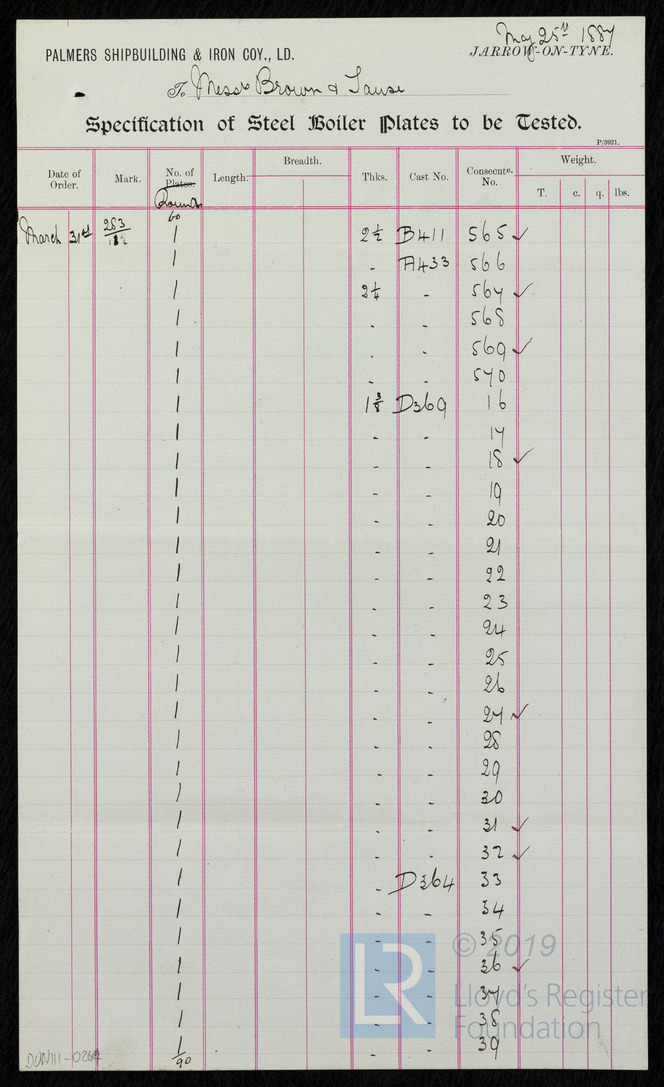 May 25th 1887
PALMERS SHIPBUILDING & IRON COY., LD.
JARROW-ON-TYNE.
To Messrs Brown &
Specification of Steel Boiler Plates to be Tested.
P/3921.
Date of Order. Mark. No. of Plates. Rounds Length. Breadth. Thks. Cast No. Consecute. No. Weight. T. c. q. lbs.
60
March 31st 283/112 1 2 1/2 B411 565 ✓
1 - A433 566
1 2 1/4 - 567 ✓
1 - - 568
1 - - 569 ✓
1 - - 570
1 1 3/8 D369 16
1 - - 17
1 - - 18 ✓
1 - - 19
1 - - 20
1 - - 21
1 - - 22
1 - - 23
1 - - 24
1 - - 25
1 - - 26
1 - - 27 ✓
1 - - 28
1 - - 29
1 - - 30
1 - - 31 ✓
1 - - 32 ✓
1 - D364 33
1 - - 34
1 - - 35
1 - - 36 ✓
1 - - 37
1 - - 38
1 - - 39
90
LR
© 2019
Lloyd's Register
Foundation